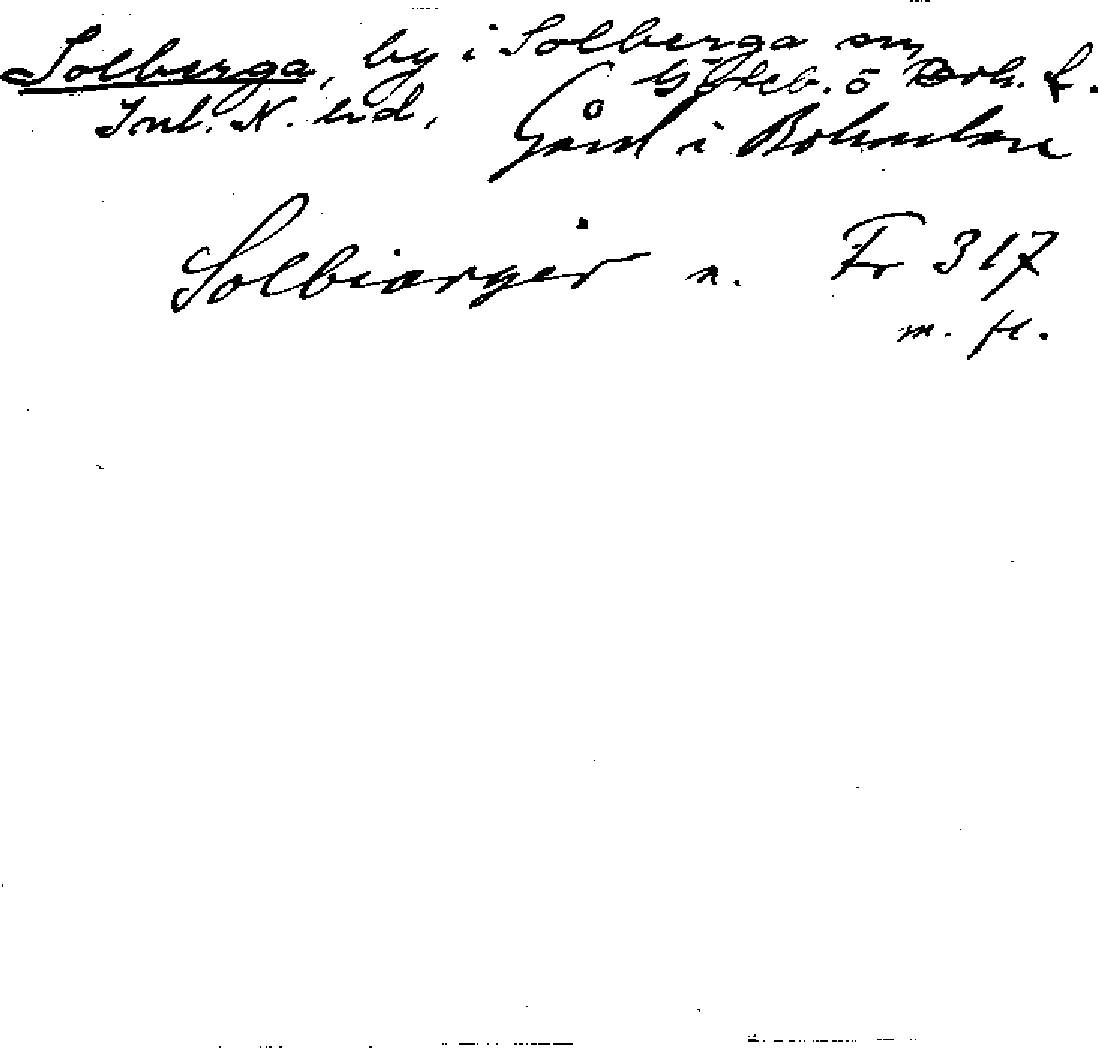 Solberga, by i Solberga sn,
Inl. N. hd, Göteb. o Boh. l.
Gård i Bohuslän
Solbiargir n. Fr 317
m. fl.